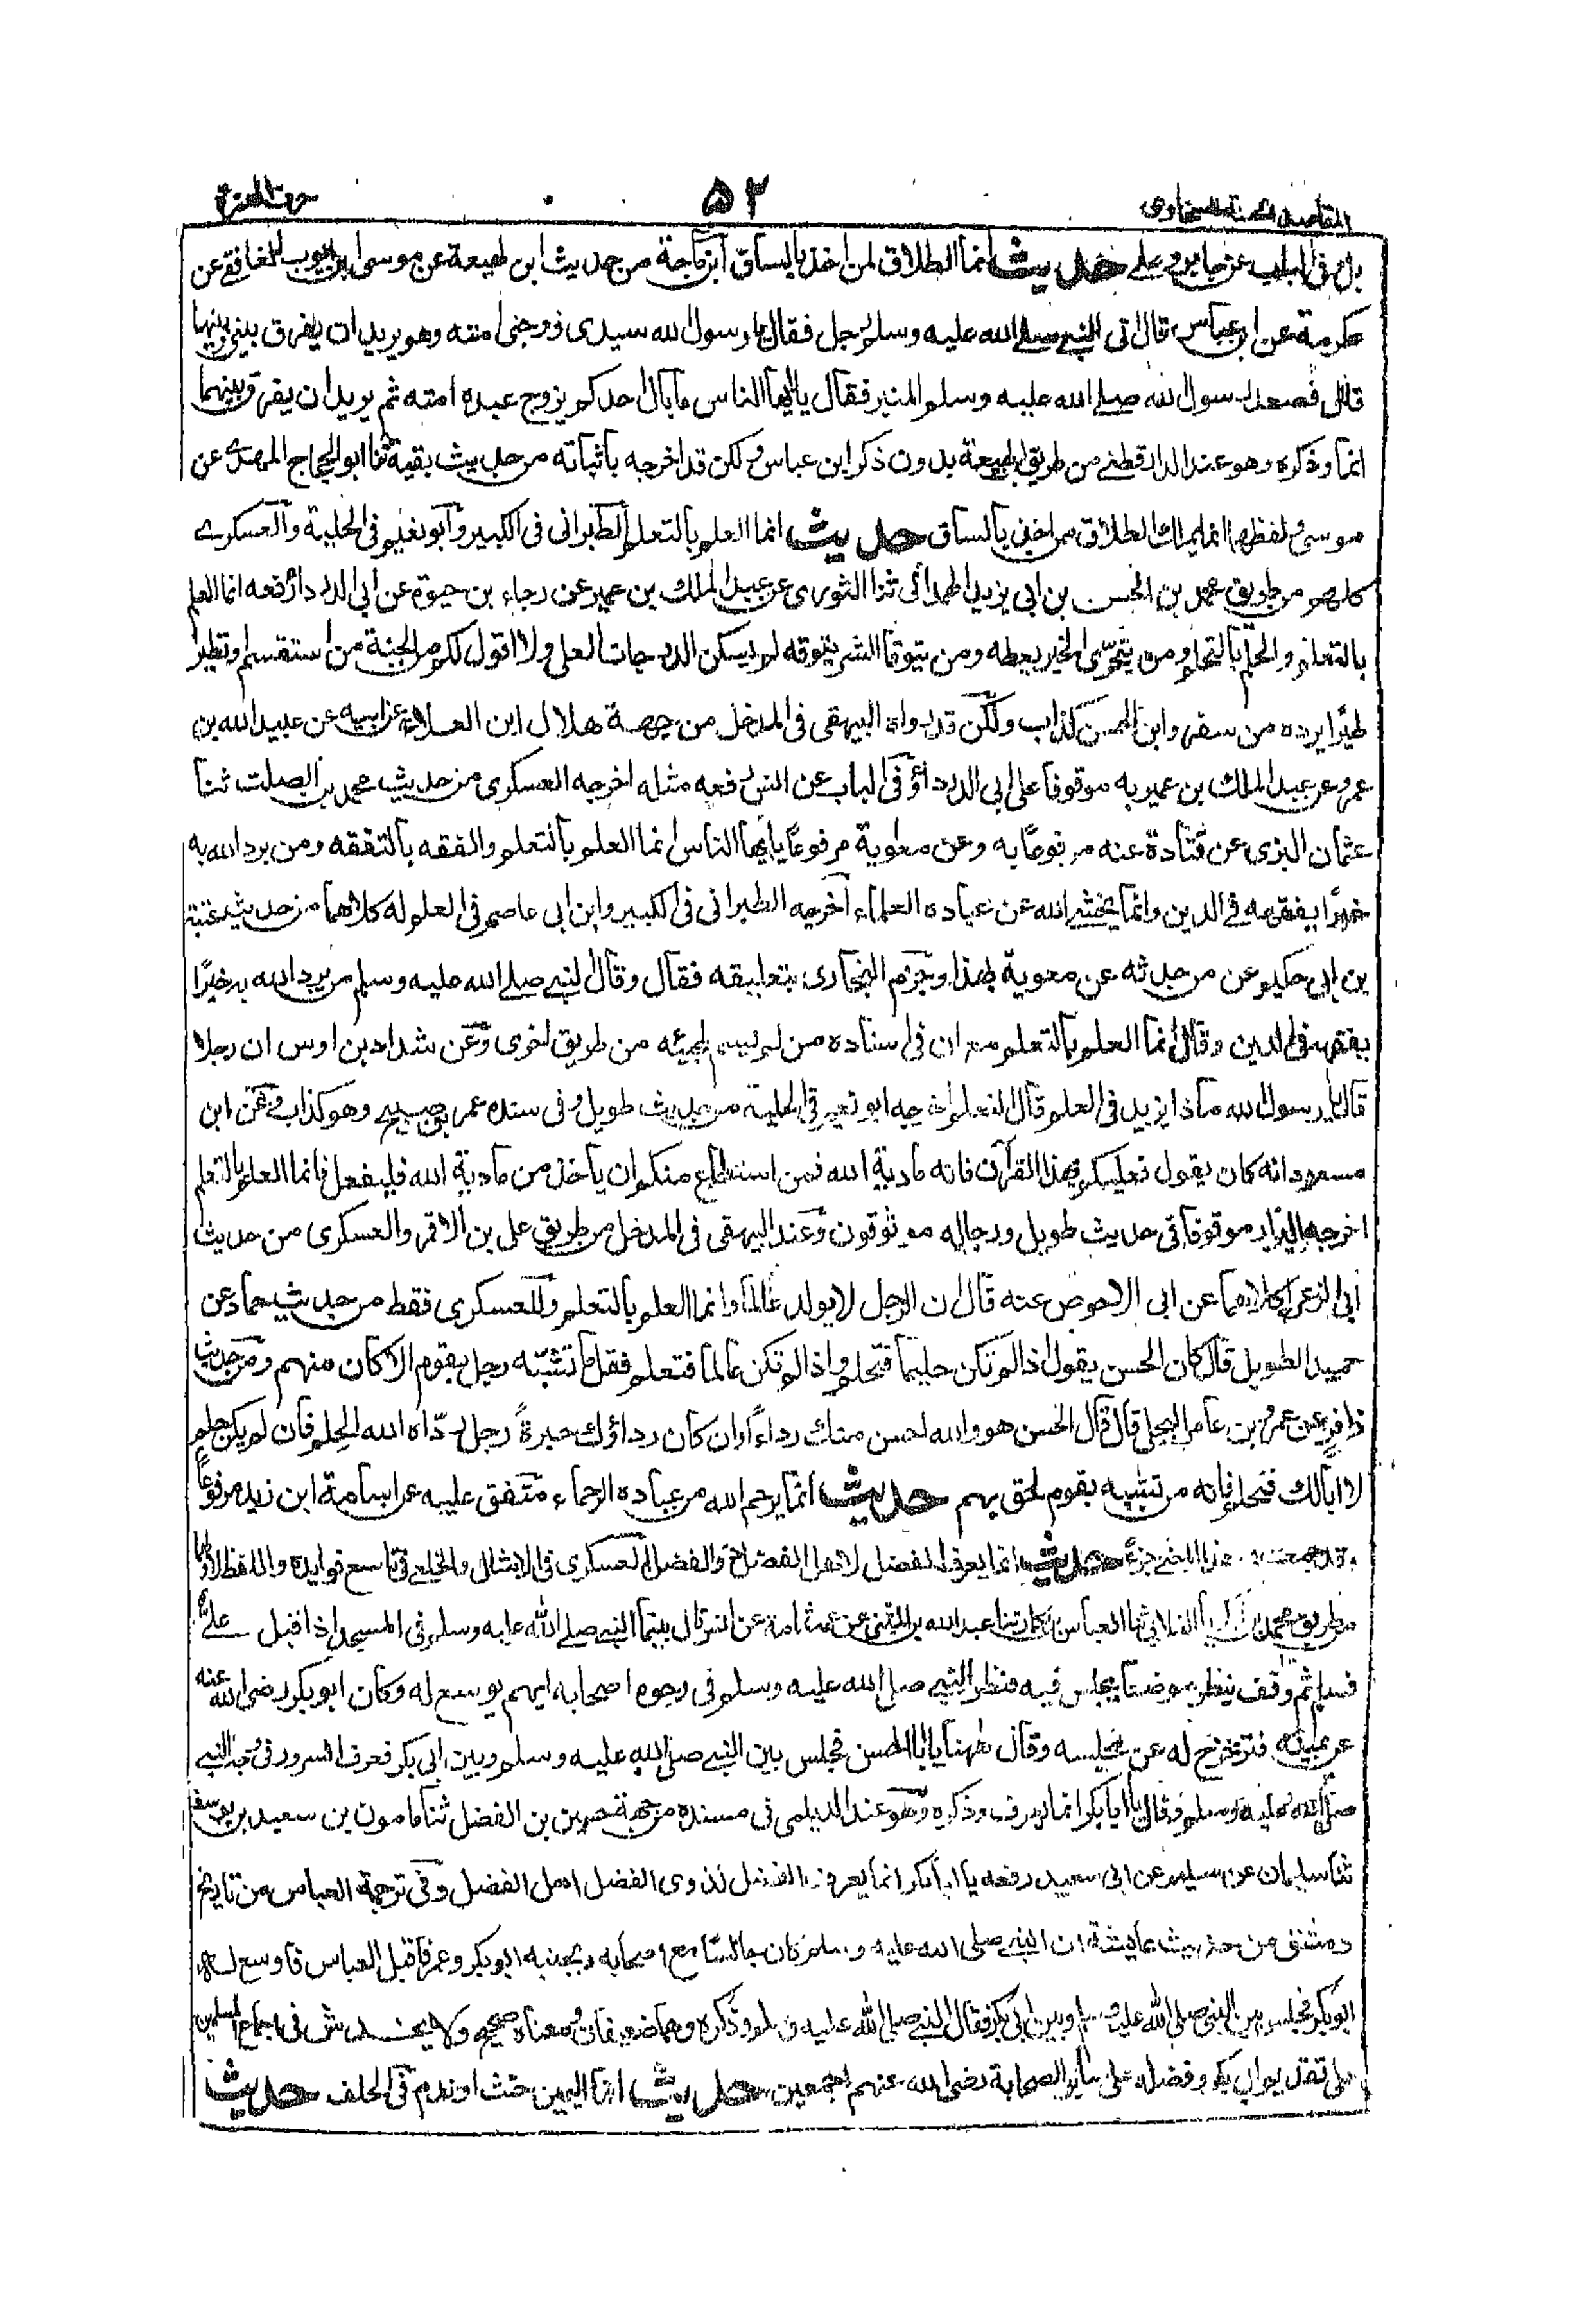 المقاصد الحسنة للسخاوى ۵۲ حرف الهمزة
بل وفى الباب عن جابر وعلى حديث انما الطلاق لمن اخذ بالساق ابن ماجة من حديث ابن لهيعة عن موسى ابن ايوب الغافقى عن
عكرمة عن ابن عباس قال اتى النبى صلى الله عليه وسلم رجل فقال يا رسول الله سيدى زوجنى امته وهو يريد ان يفرق بينى وبينها
قال فصعد رسول الله صلى الله عليه وسلم المنبر فقال يا ايها الناس ما بال احدكم يزوج عبده امته ثم يريد ان يفرق بينهما
انما وذكره وهو عند الدارقطنى من طريق ابن لهيعة بدون ذكر ابن عباس ولكن قد اخرجه باثباته من حديث بقية ثنا ابو الحجاج المهرى عن
موسى ولفظها انما يملك الطلاق من اخذ بالساق حديث انما العلم بالتعلم الطبرانى فى الكبير وابو نعيم فى الحلية والعسكرى
كلهم من طريق محمد بن الحسن بن ابى يزيد الهمدانى ثنا الثورى عن عبد الملك بن عمير عن رجاء بن حيوة عن ابى الدرداء رفعه انما العلم
بالتعلم والحلم بالتحلم ومن يتحرى الخير يعطه ومن يتوق الشر يتوقه لم يسكن الدرجات العلى ولا اقول لكم من الجنة من استقسم او تطير
طيرًا يرده من سفر وابن الحسن كذاب ولكن قد رواه البيهقى فى المدخل من جهة هلال ابن العلاء عن ابيه عن عبيد الله بن
عمرو عن عبد الملك بن عمير به موقوفا على ابى الدرداء وفى الباب عن انس رفعه مثله اخرجه العسكرى من حديث محمد بن الصلت ثنا
عثمان البزى عن قتادة عنه مرفوعًا به وعن معاوية مرفوعًا يا ايها الناس انما العلم بالتعلم والفقه بالتفقه ومن يرد الله به
خيرًا يفقهه فى الدين وانما يخشى الله من عباده العلماء اخرجه الطبرانى فى الكبير وابن ابى عاصم فى العلم له كلاهما من حديث عتبة
بن ابى حكيم عن من حدثه عن معوية بهذا وجزم البخارى بتعليقه فقال وقال النبى صلى الله عليه وسلم من يرد الله به خيرًا
يفقهه فى الدين وقال انما العلم بالتعلم مع ان فى اسناده من لم يسم لمجيئه من طريق اخرى وعن شداد بن اوس ان رجلا
قال يا رسول الله ماذا يزيد فى العلم قال التعلم اخرجه ابو نعيم فى الحلية من حديث طويل وفى سنده عمر بن صبيح وهو كذاب وعن ابن
مسعود انه كان يقول فعليكم بهذا القرآن فانه مادبة الله فمن استطاع منكم ان ياخذ من مادبة الله فليفعل فانما العلم بالتعلم
اخرجه البزار موقوفا فى حديث طويل ورجاله موثوقون وعند البيهقى فى المدخل من طريق على بن الاقمر والعسكرى من حديث
ابى الزعراء كلاهما عن ابى الاحوص عنه قال ان الرجل لا يولد عالما وانما العلم بالتعلم وللعسكرى فقط من حديث حماد عن
حميد الطويل قال كان الحسن يقول اذا لم تكن حليما فتحلم واذا لم تكن عالما فتعلم فقل ما تشبه رجل بقوم الا كان منهم ومن حديث
زافر عن عمرو بن عامر البجلى قال قال الحسن هو والله احسن منك رداءً وان كان رداؤك حبرةً رجل رداه الله الحلم فان لم يكن حلم
لا ابا لك فتحلم فانه من تشبه بقوم لحق بهم حديث انما يرحم الله من عباده الرحماء متفق عليه عن اسامة ابن زيد مرفوعًا
حديث انما يعرف الفضل لاهل الفضل العسكرى فى الامثال والخلعى فى تاسع فوايده واللفظ
من طريق محمد بن الغلابى ثنا العباس بن بكار ثنا عبد الله بن المثنى عن عمه ثمامة عن انس قال بينما النبى صلى الله عليه وسلم فى المسجد اذ اقبل على
فسلم ثم وقف ينظر موضعًا يجلس فيه فنظر النبى صلى الله عليه وسلم فى وجوه اصحابه ايهم يوسع له وكان ابو بكر رضى الله عنه
عن يمينه فتزحزح له عن مجلسه وقال ههنا يا ابا الحسن فجلس بين النبى صلى الله عليه وسلم وبين ابى بكر فعرف السرور فى وجه النبى
صلى الله عليه وسلم فقال يا ابا بكر انما يعرف وذكره وهو عند الديلمى فى مسنده من جهة بن الفضل ثنا مامون بن سعيد بن يوسف
ثنا سليمان عن سليم عن ابى سعيد رفعه يا ابا بكر انما يعرف الفضل لذوى الفضل اهل الفضل وفى ترجمة العباس من تاريخ
دمشق من حديث عايشة ان النبى صلى الله عليه وسلم كان جالسًا مع اصحابه وبجنبه ابو بكر وعمر فاقبل العباس فاوسع له
ابو بكر فجلس بين النبى صلى الله عليه وسلم وبين ابى بكر فقال النبى صلى الله عليه وسلم وذكره وهما ضعيفان ومعناه صحيح ولا يخدش فى اجماع المسلمين
على تقديم ابى بكر وفضله على سائر الصحابة رضى الله عنهم اجمعين حديث انما اليمين حنث او ندم فى الحلف حديث